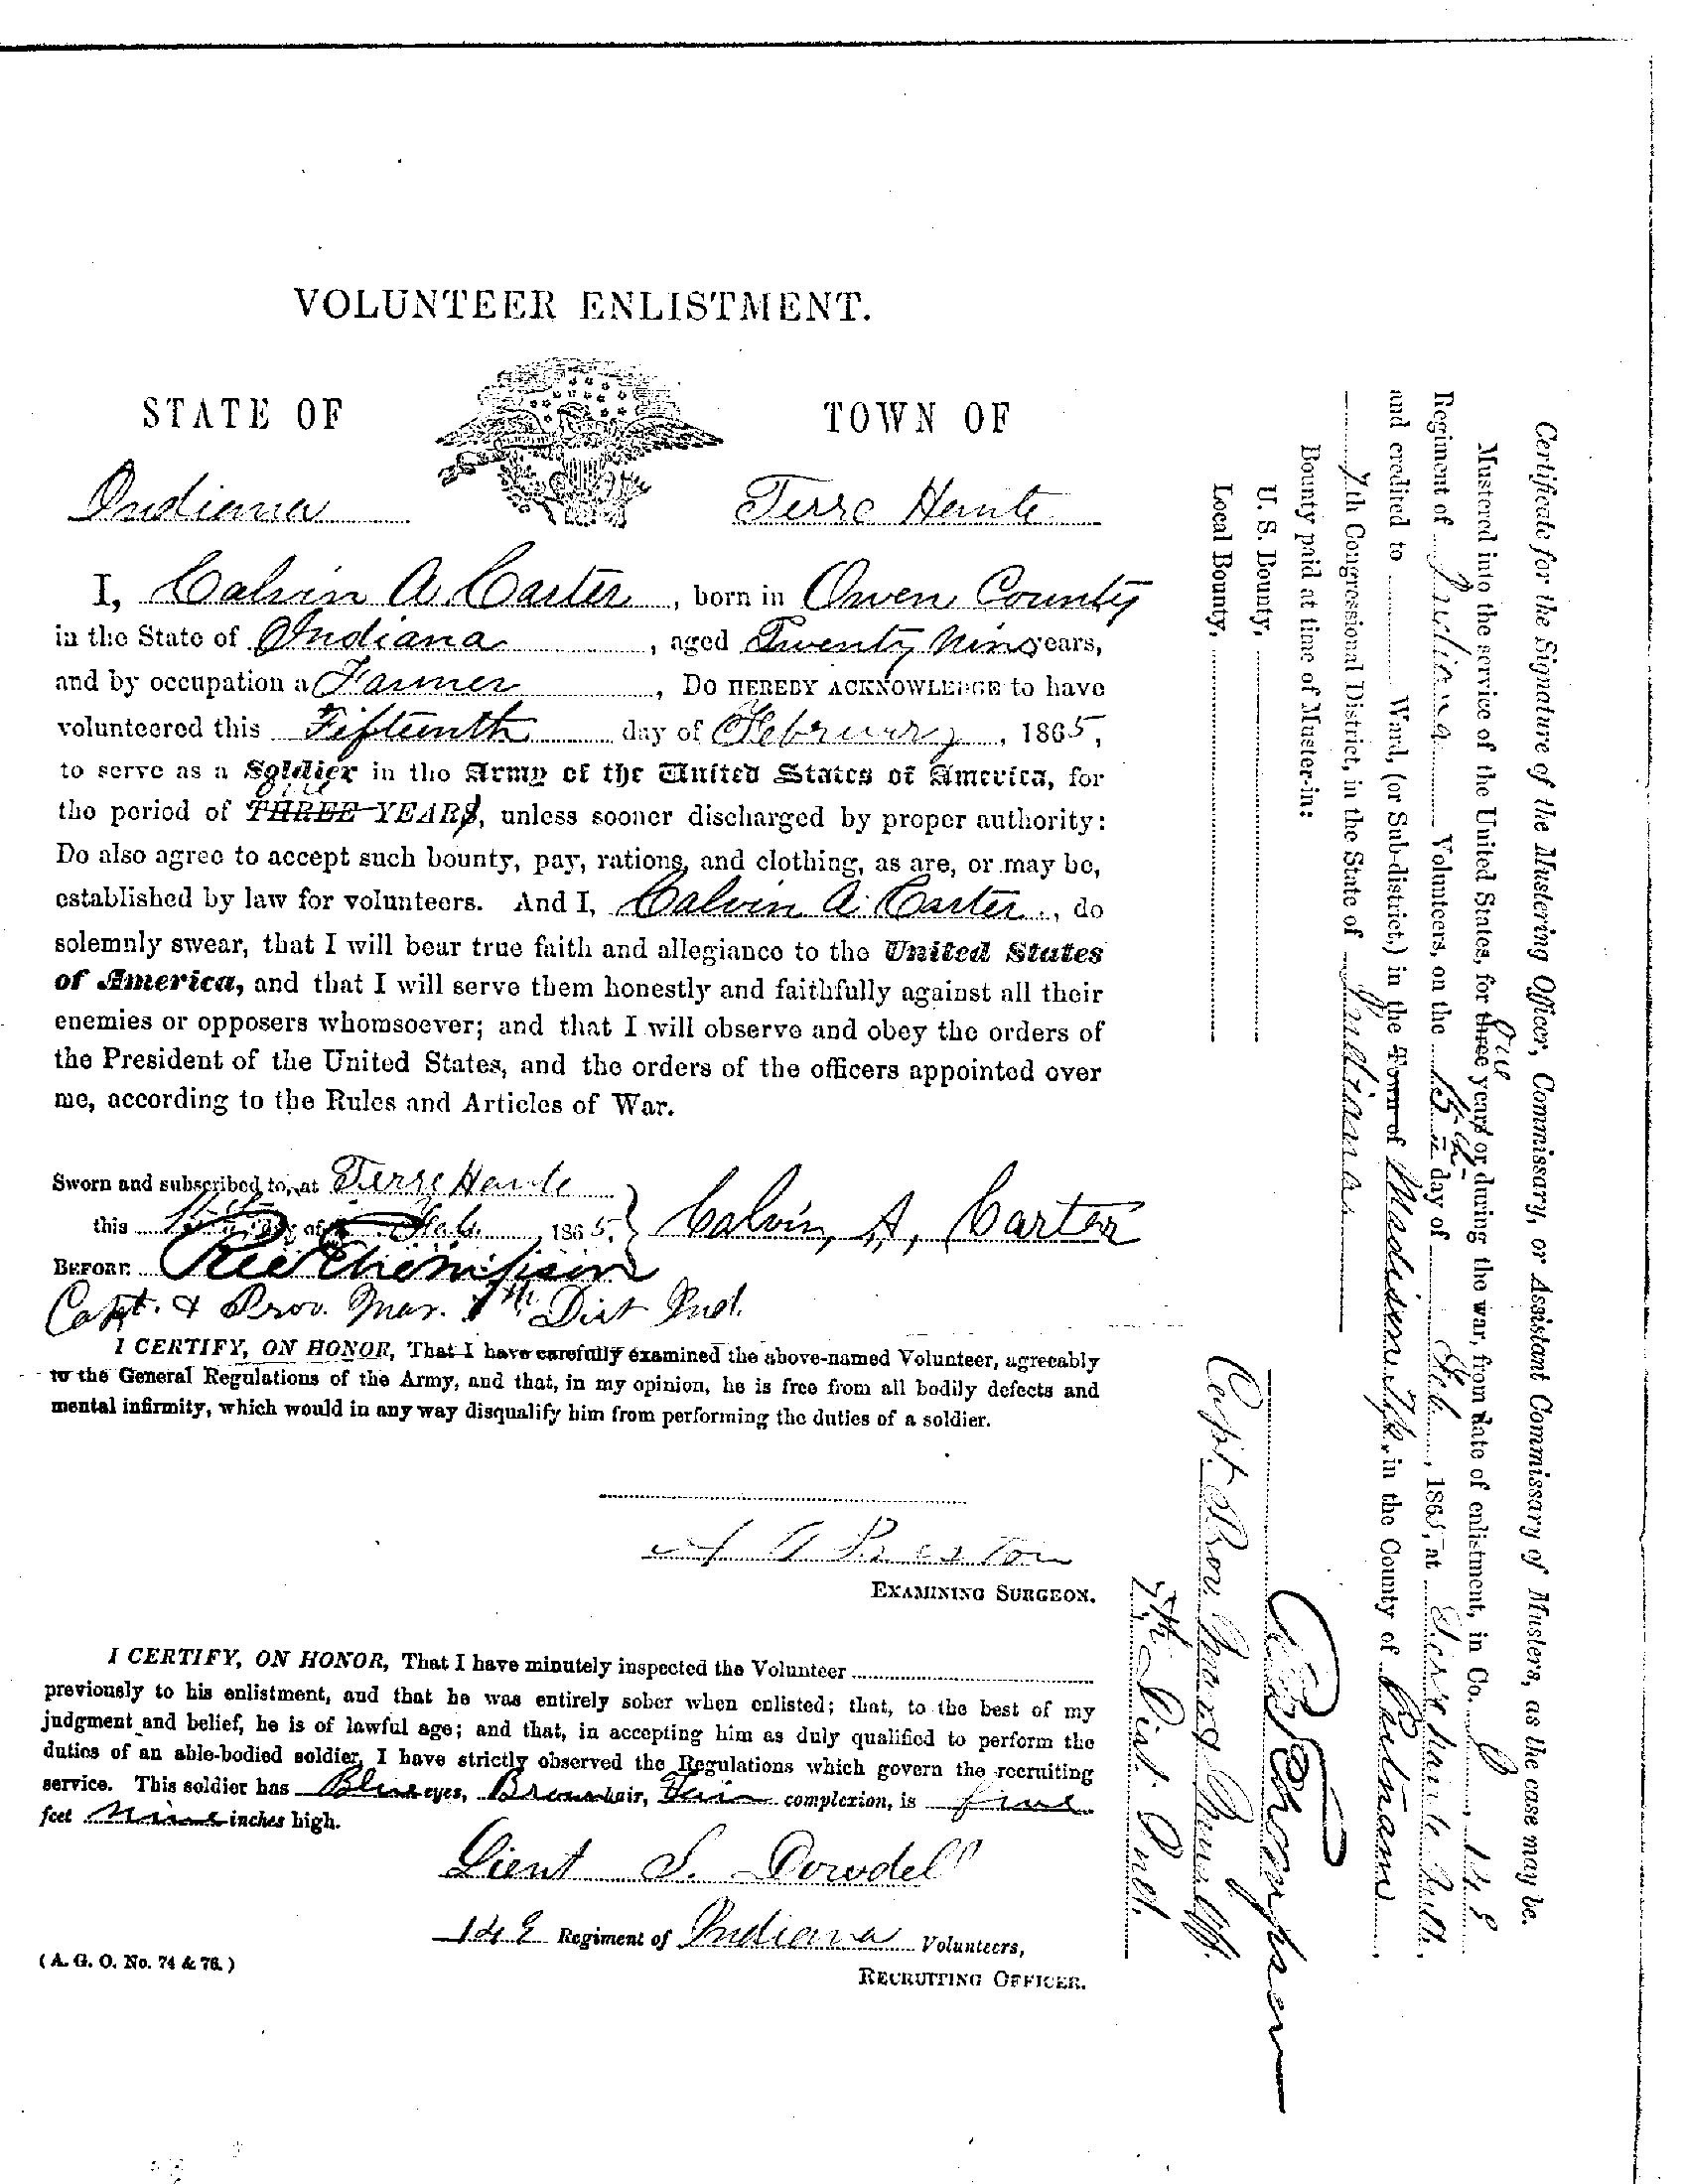 VOLUNTEER ENLISTMENT.
STATE OF
TOWN OF
Indiana
Terre Haute
I, Calvin A. Carter, born in Owen County
in the State of Indiana, aged Twenty Nine years,
and by occupation a Farmer, DO HEREBY ACKNOWLEDGE to have
volunteered this Fifteenth day of February, 1865,
to serve as a Soldier in the Army of the United States of America, for
one
the period of THREE YEARS, unless sooner discharged by proper authority:
Do also agree to accept such bounty, pay, rations, and clothing, as are, or may be,
established by law for volunteers. And I, Calvin A. Carter, do
solemnly swear, that I will bear true faith and allegiance to the United States
of America, and that I will serve them honestly and faithfully against all their
enemies or opposers whomsoever; and that I will observe and obey the orders of
the President of the United States, and the orders of the officers appointed over
me, according to the Rules and Articles of War.
Sworn and subscribed to, at Terre Haute
this 15th day of Feb. 1865, Calvin, A, Carter
BEFORE R W Thompson
Capt. & Prov. Mar. 7th Dist Ind.
I CERTIFY, ON HONOR, That I have carefully examined the above-named Volunteer, agreeably
to the General Regulations of the Army, and that, in my opinion, he is free from all bodily defects and
mental infirmity, which would in any way disqualify him from performing the duties of a soldier.
Preston
EXAMINING SURGEON.
I CERTIFY, ON HONOR, That I have minutely inspected the Volunteer
previously to his enlistment, and that he was entirely sober when enlisted; that, to the best of my
judgment and belief, he is of lawful age; and that, in accepting him as duly qualified to perform the
duties of an able-bodied soldier, I have strictly observed the Regulations which govern the recruiting
service. This soldier has Blue eyes, Brown hair, Fair complexion, is five
feet Nine inches high.
Lieut S. Dowdell
149 Regiment of Indiana Volunteers,
RECRUITING OFFICER.
(A. G. O. No. 74 & 76.)
Certificate for the Signature of the Mustering Officer, Commissary, or Assistant Commissary of Musters, as the case may be.
one
Mustered into the service of the United States, for three years or during the war, from date of enlistment, in Co. 149
Regiment of Indiana Volunteers, on the 15th day of Feb., 1865, at Terre Haute Ind.,
and credited to Ward, (or Sub-district,) in the Town of Madison Tp, in the County of Putnam,
7th Congressional District, in the State of Indiana
Bounty paid at time of Muster-in:
U. S. Bounty,
Local Bounty,
R W Thompson
Capt. & Prov. Mar & Mus. Off.
7th Dist. Ind.